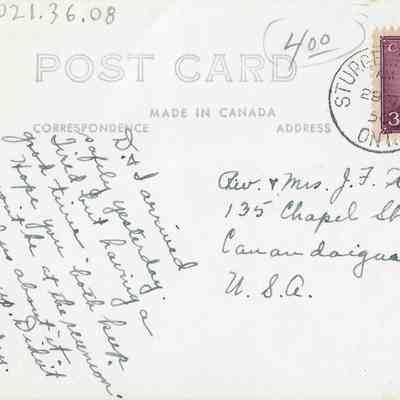 021.36.08
400
POST CARD
MADE IN CANADA
CORRESPONDENCE
ADDRESS
STURGE
ONT
3
D. & I arrived
safely yesterday.
Tired but having a
good time. Both keep
Hope you
be at the reunion.
us about it.
Did it
Rev. & Mrs. J. F.
135 Chapel St
Canandaigua
U. S. A.